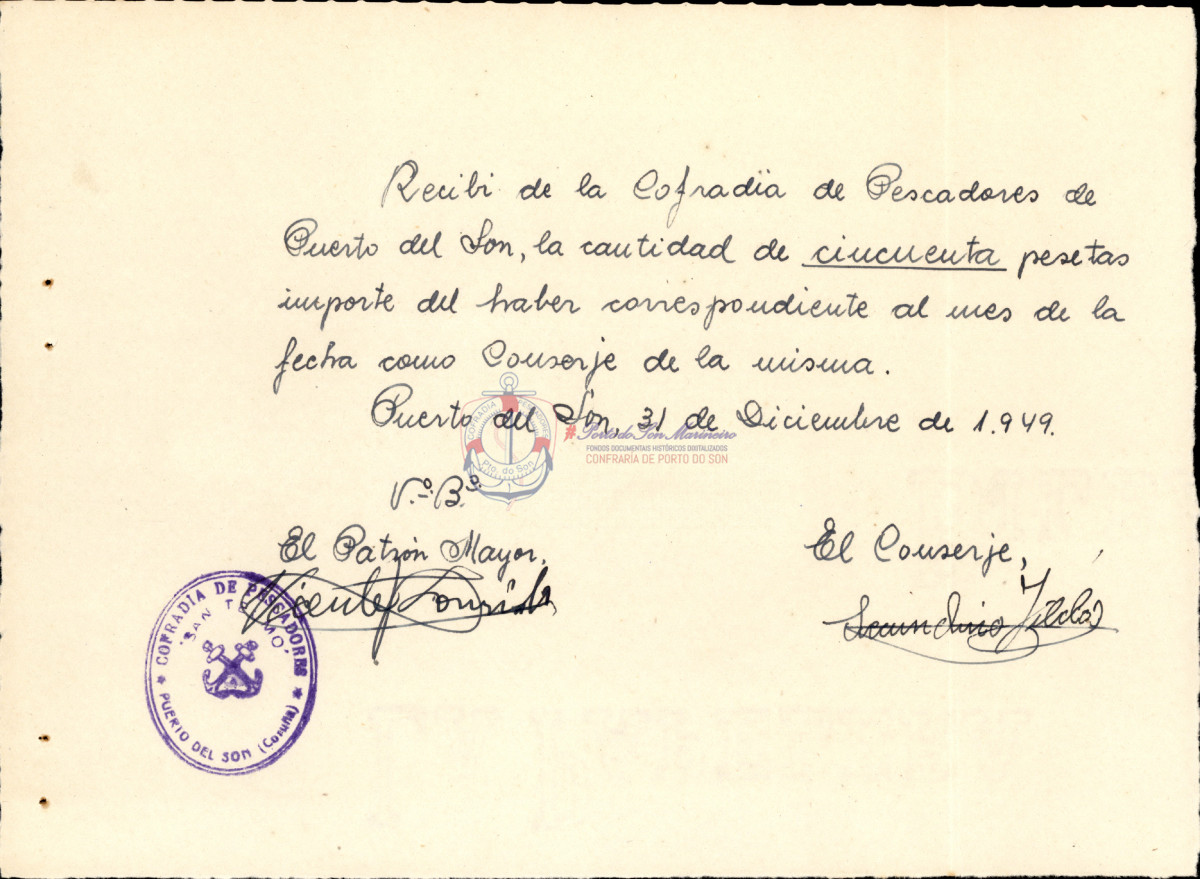 Recibi de la Cofradia de Pescadores de
Puerto del Son, la cantidad de cincuenta pesetas
importe del haber correspondiente al mes de la
fecha como Conserje de la misma.
Puerto del Son, 31 de Diciembre de 1.949.
COFRADIA
Pto. do Son
#PortodoSon Mariñeiro
FONDOS DOCUMENTAIS HISTÓRICOS DIGITALIZADOS
CONFRARÍA DE PORTO DO SON
V.º B.º
El Patrón Mayor,
Vicente
El Conserje,
Secundino
COFRADIA DE PESCADORES
"SAN TELMO"
PUERTO DEL SON (Coruña)